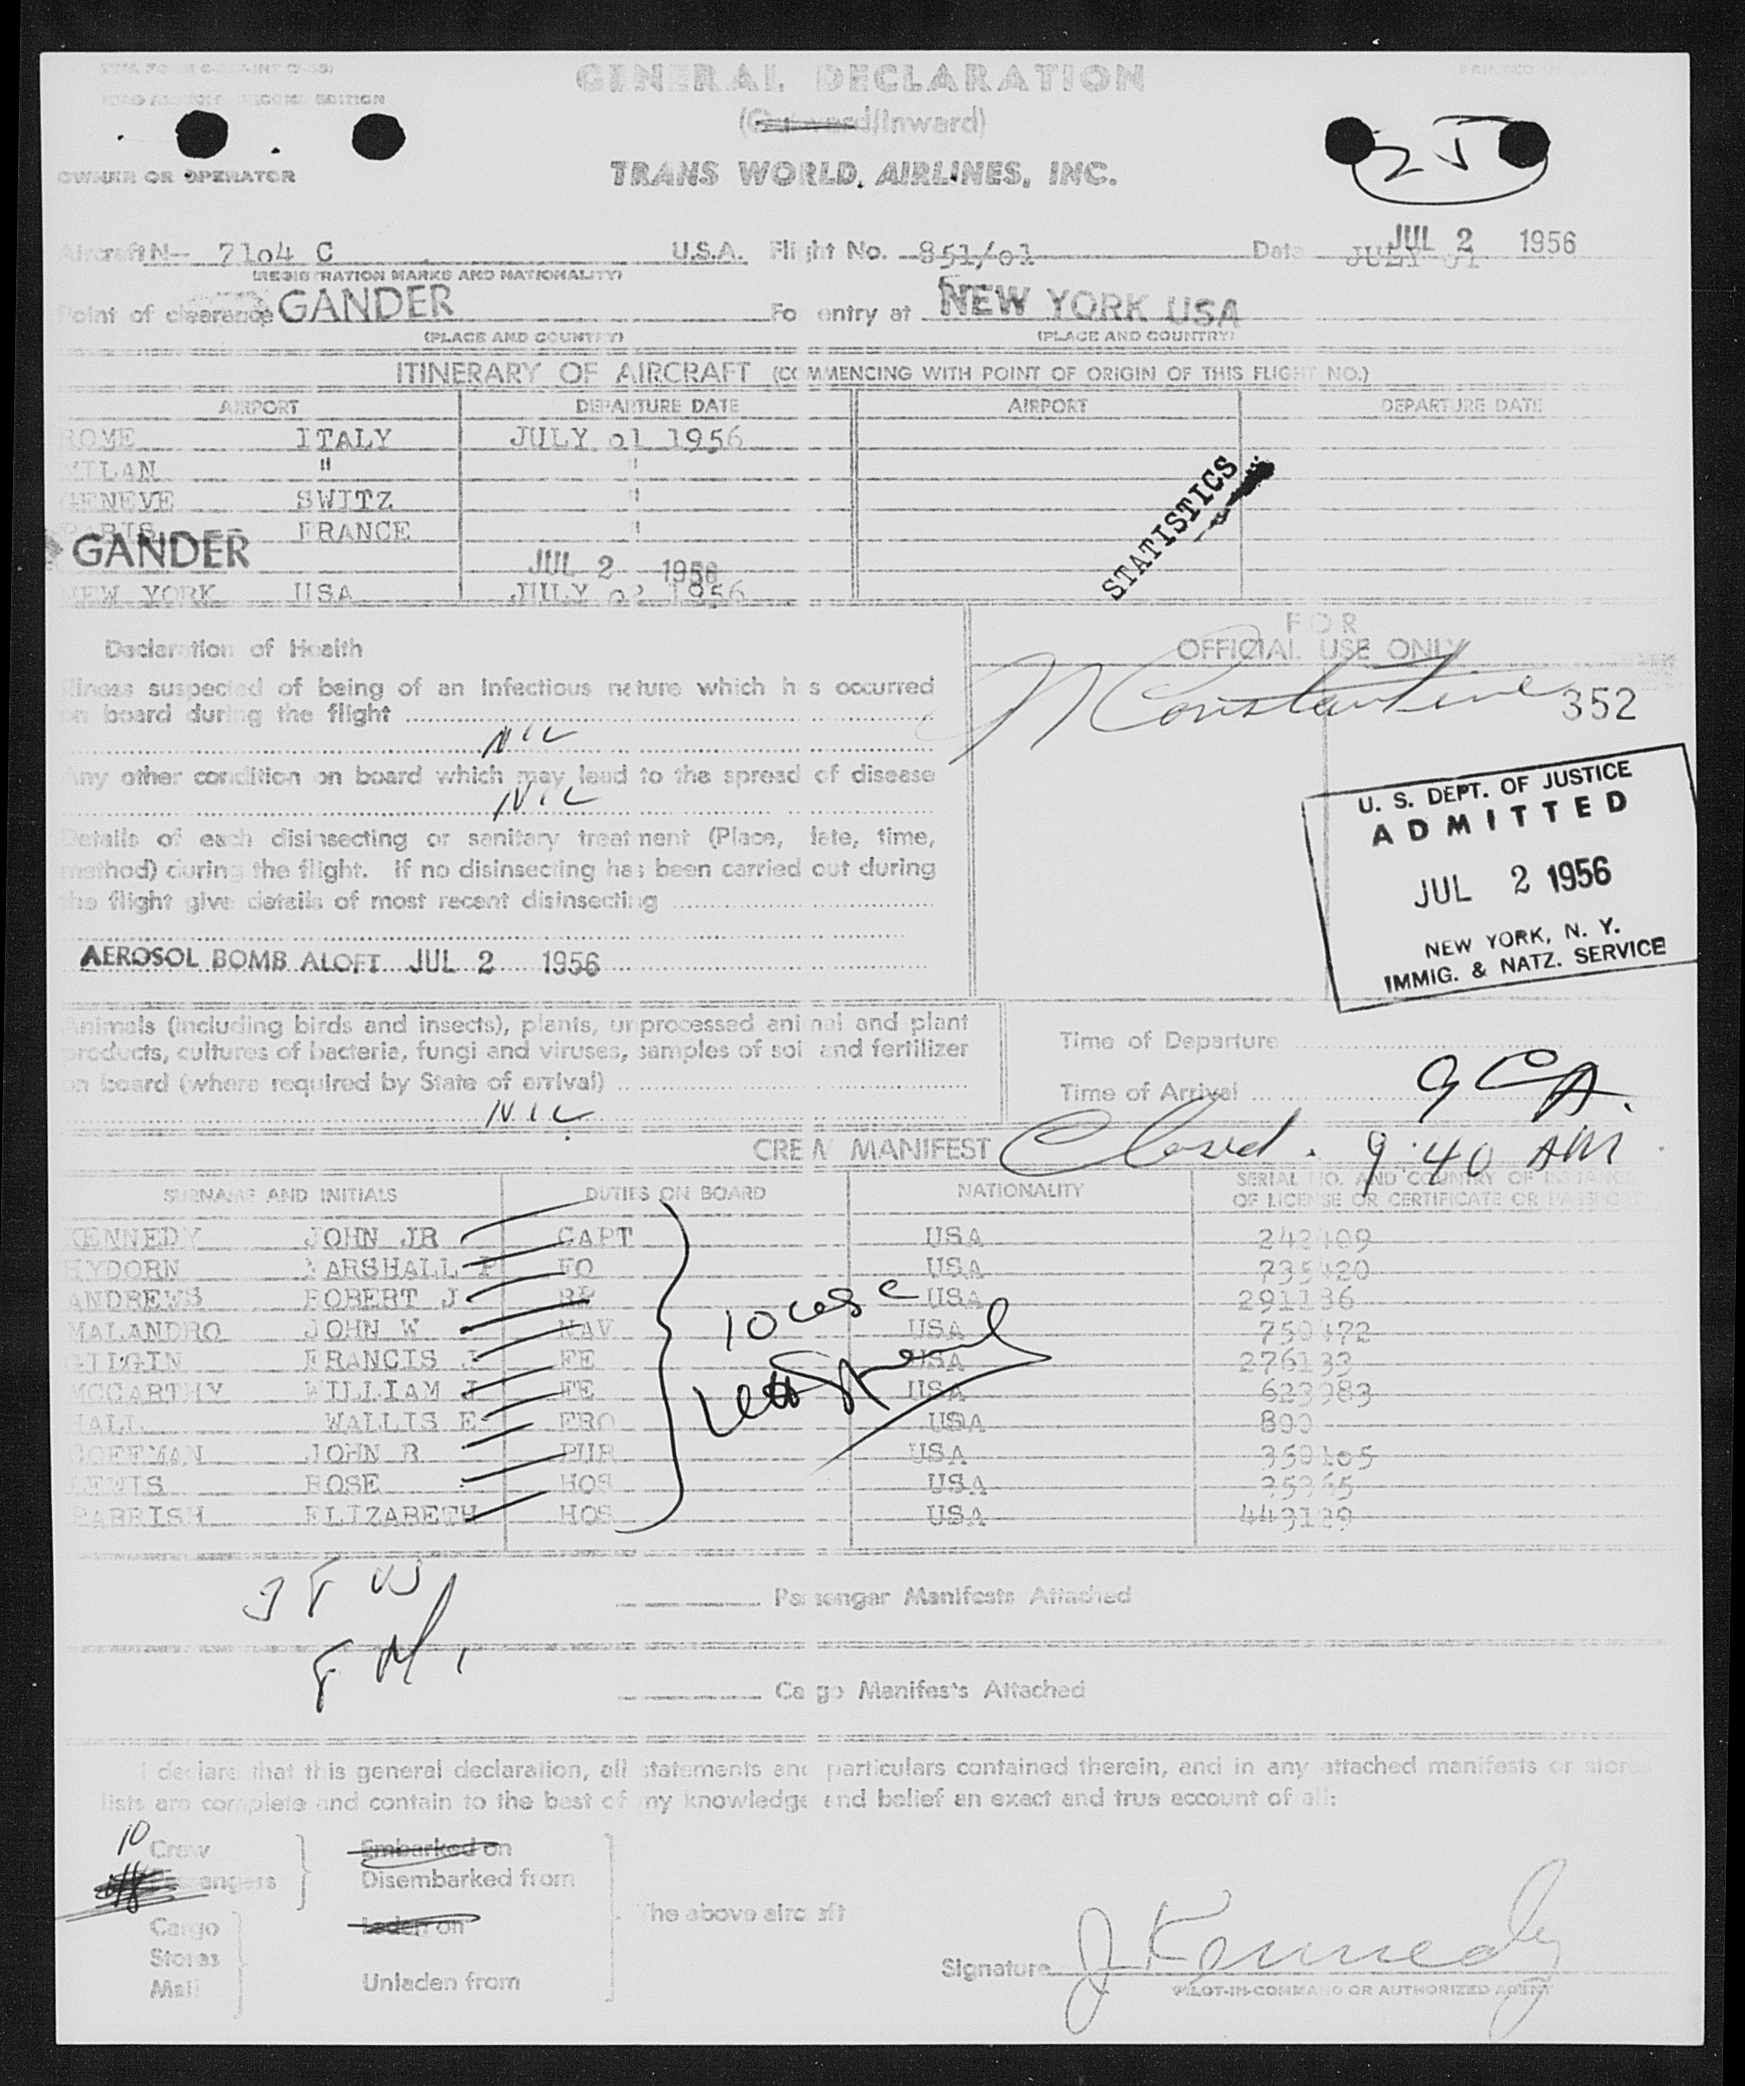 GENERAL DECLARATION
(Outward/Inward)
OWNER OR OPERATOR TRANS WORLD AIRLINES, INC. 25
JUL 2 1956
Aircraft N- 7104 C U.S.A. Flight No. 851/01 Date JULY 01
(REGISTRATION MARKS AND NATIONALITY)
Point of clearance GANDER For entry at NEW YORK USA
(PLACE AND COUNTRY) (PLACE AND COUNTRY)
ITINERARY OF AIRCRAFT (COMMENCING WITH POINT OF ORIGIN OF THIS FLIGHT NO.)
AIRPORT DEPARTURE DATE AIRPORT DEPARTURE DATE
ROME ITALY JULY 01 1956
MILAN " "
GENEVE SWITZ "
PARIS FRANCE "
GANDER JUL 2 1956
NEW YORK USA JULY 02 1956
STATISTICS
FOR
OFFICIAL USE ONLY
Declaration of Health
Illness suspected of being of an infectious nature which has occurred
on board during the flight
N Constantine 352
NIL
Any other condition on board which may lead to the spread of disease
NIL
Details of each disinsecting or sanitary treatment (Place, date, time,
method) during the flight. If no disinsecting has been carried out during
the flight give details of most recent disinsecting
AEROSOL BOMB ALOFT JUL 2 1956
U. S. DEPT. OF JUSTICE
ADMITTED
JUL 2 1956
NEW YORK, N. Y.
IMMIG. & NATZ. SERVICE
Animals (including birds and insects), plants, unprocessed animal and plant
products, cultures of bacteria, fungi and viruses, samples of soil and fertilizer
on board (where required by State of arrival)
NIL
Time of Departure
Time of Arrival 9
CREW MANIFEST Closed. 9:40 AM
SURNAME AND INITIALS DUTIES ON BOARD NATIONALITY SERIAL NO. AND COUNTRY OF ISSUANCE
OF LICENSE OR CERTIFICATE OR PASSPORT
KENNEDY JOHN JR CAPT USA 242409
HYDORN MARSHALL P FO USA 735420
ANDREWS ROBERT J USA 291136
MALANDRO JOHN W NAV USA 750472
FRANCIS J FE USA 276133
MCCARTHY WILLIAM J FE USA 623983
HALL WALLIS E FRO USA 890
COFFMAN JOHN R PUR USA 350105
LEWIS ROSE HOS USA
PARRISH ELIZABETH HOS USA 443129
10 usc
Passenger Manifests Attached
Cargo Manifests Attached
I declare that this general declaration, all statements and particulars contained therein, and in any attached manifests or stores
lists are complete and contain to the best of my knowledge and belief an exact and true account of all:
10 Crew Embarked on
Passengers Disembarked from
Cargo Laden on The above aircraft
Stores
Mail Unladen from
Signature J Kennedy
PILOT-IN-COMMAND OR AUTHORIZED AGENT